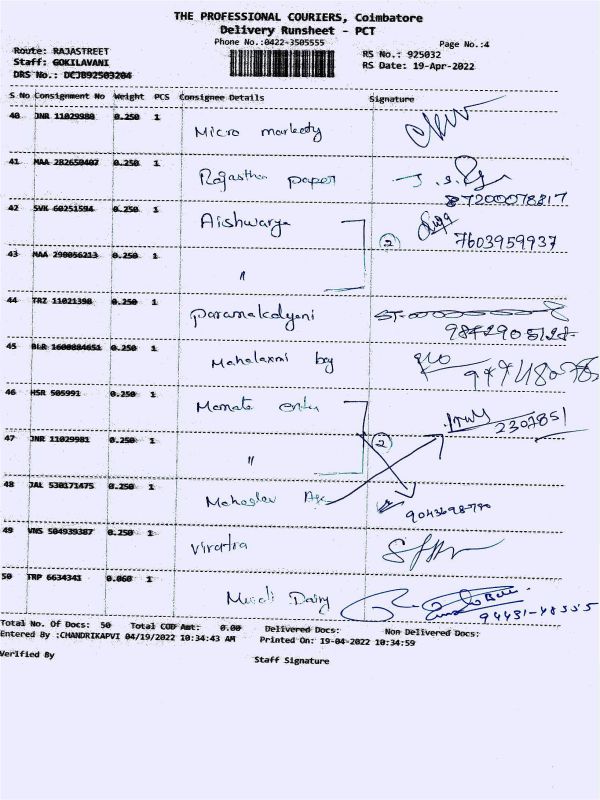 THE PROFESSIONAL COURIERS, Coimbatore
Delivery Runsheet - PCT
Phone No.:0422-3505555
Page No.:4
Route: RAJASTREET
RS No.: 925032
Staff: GOKILAVANI
RS Date: 19-Apr-2022
DRS No.: DCJ892503204
S No Consignment No Weight PCS Consignee Details Signature
40 JNR 11029980 0.250 1
41 MAA 282650407 0.250 1 Rajasthan paper
7200078817
42 SVK 60251594 0.250 1 Aishwarya
2 7603959937
43 MAA 290056213 0.250 1 "
44 TRZ 11021398 0.250 1 Paramakalyani
45 BLR 1600884651 0.250 1 Mahalaxmi bag
46 HSR 505991 0.250 1
2307851
47 JNR 11029981 0.250 1 " 2
48 JAL 530171475 0.250 1
49 VNS 504939387 0.250 1
50 TRP 6634341 0.060 1 Dairy
Total No. Of Docs: 50 Total COD Amt: 0.00 Delivered Docs: Non Delivered Docs:
Entered By :CHANDRIKAPVI 04/19/2022 10:34:43 AM Printed On: 19-04-2022 10:34:59
Verified By
Staff Signature